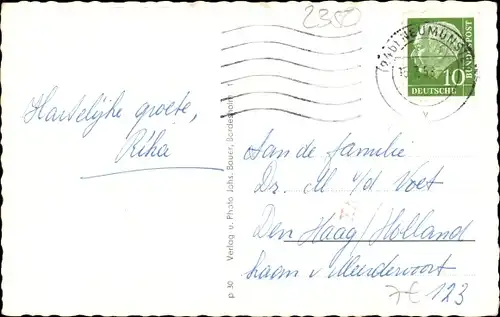 2380
(24b) NEUMÜNSTER
10
DEUTSCHE
BUNDESPOST
Hartelijke groete,
Riha
Verlag u. Photo Johs. Bauer, Bordesholm 1
p 30
Aan de familie
Dr. M v/d Voet
Den Haag/Holland
Laan v Meerdervoort
123